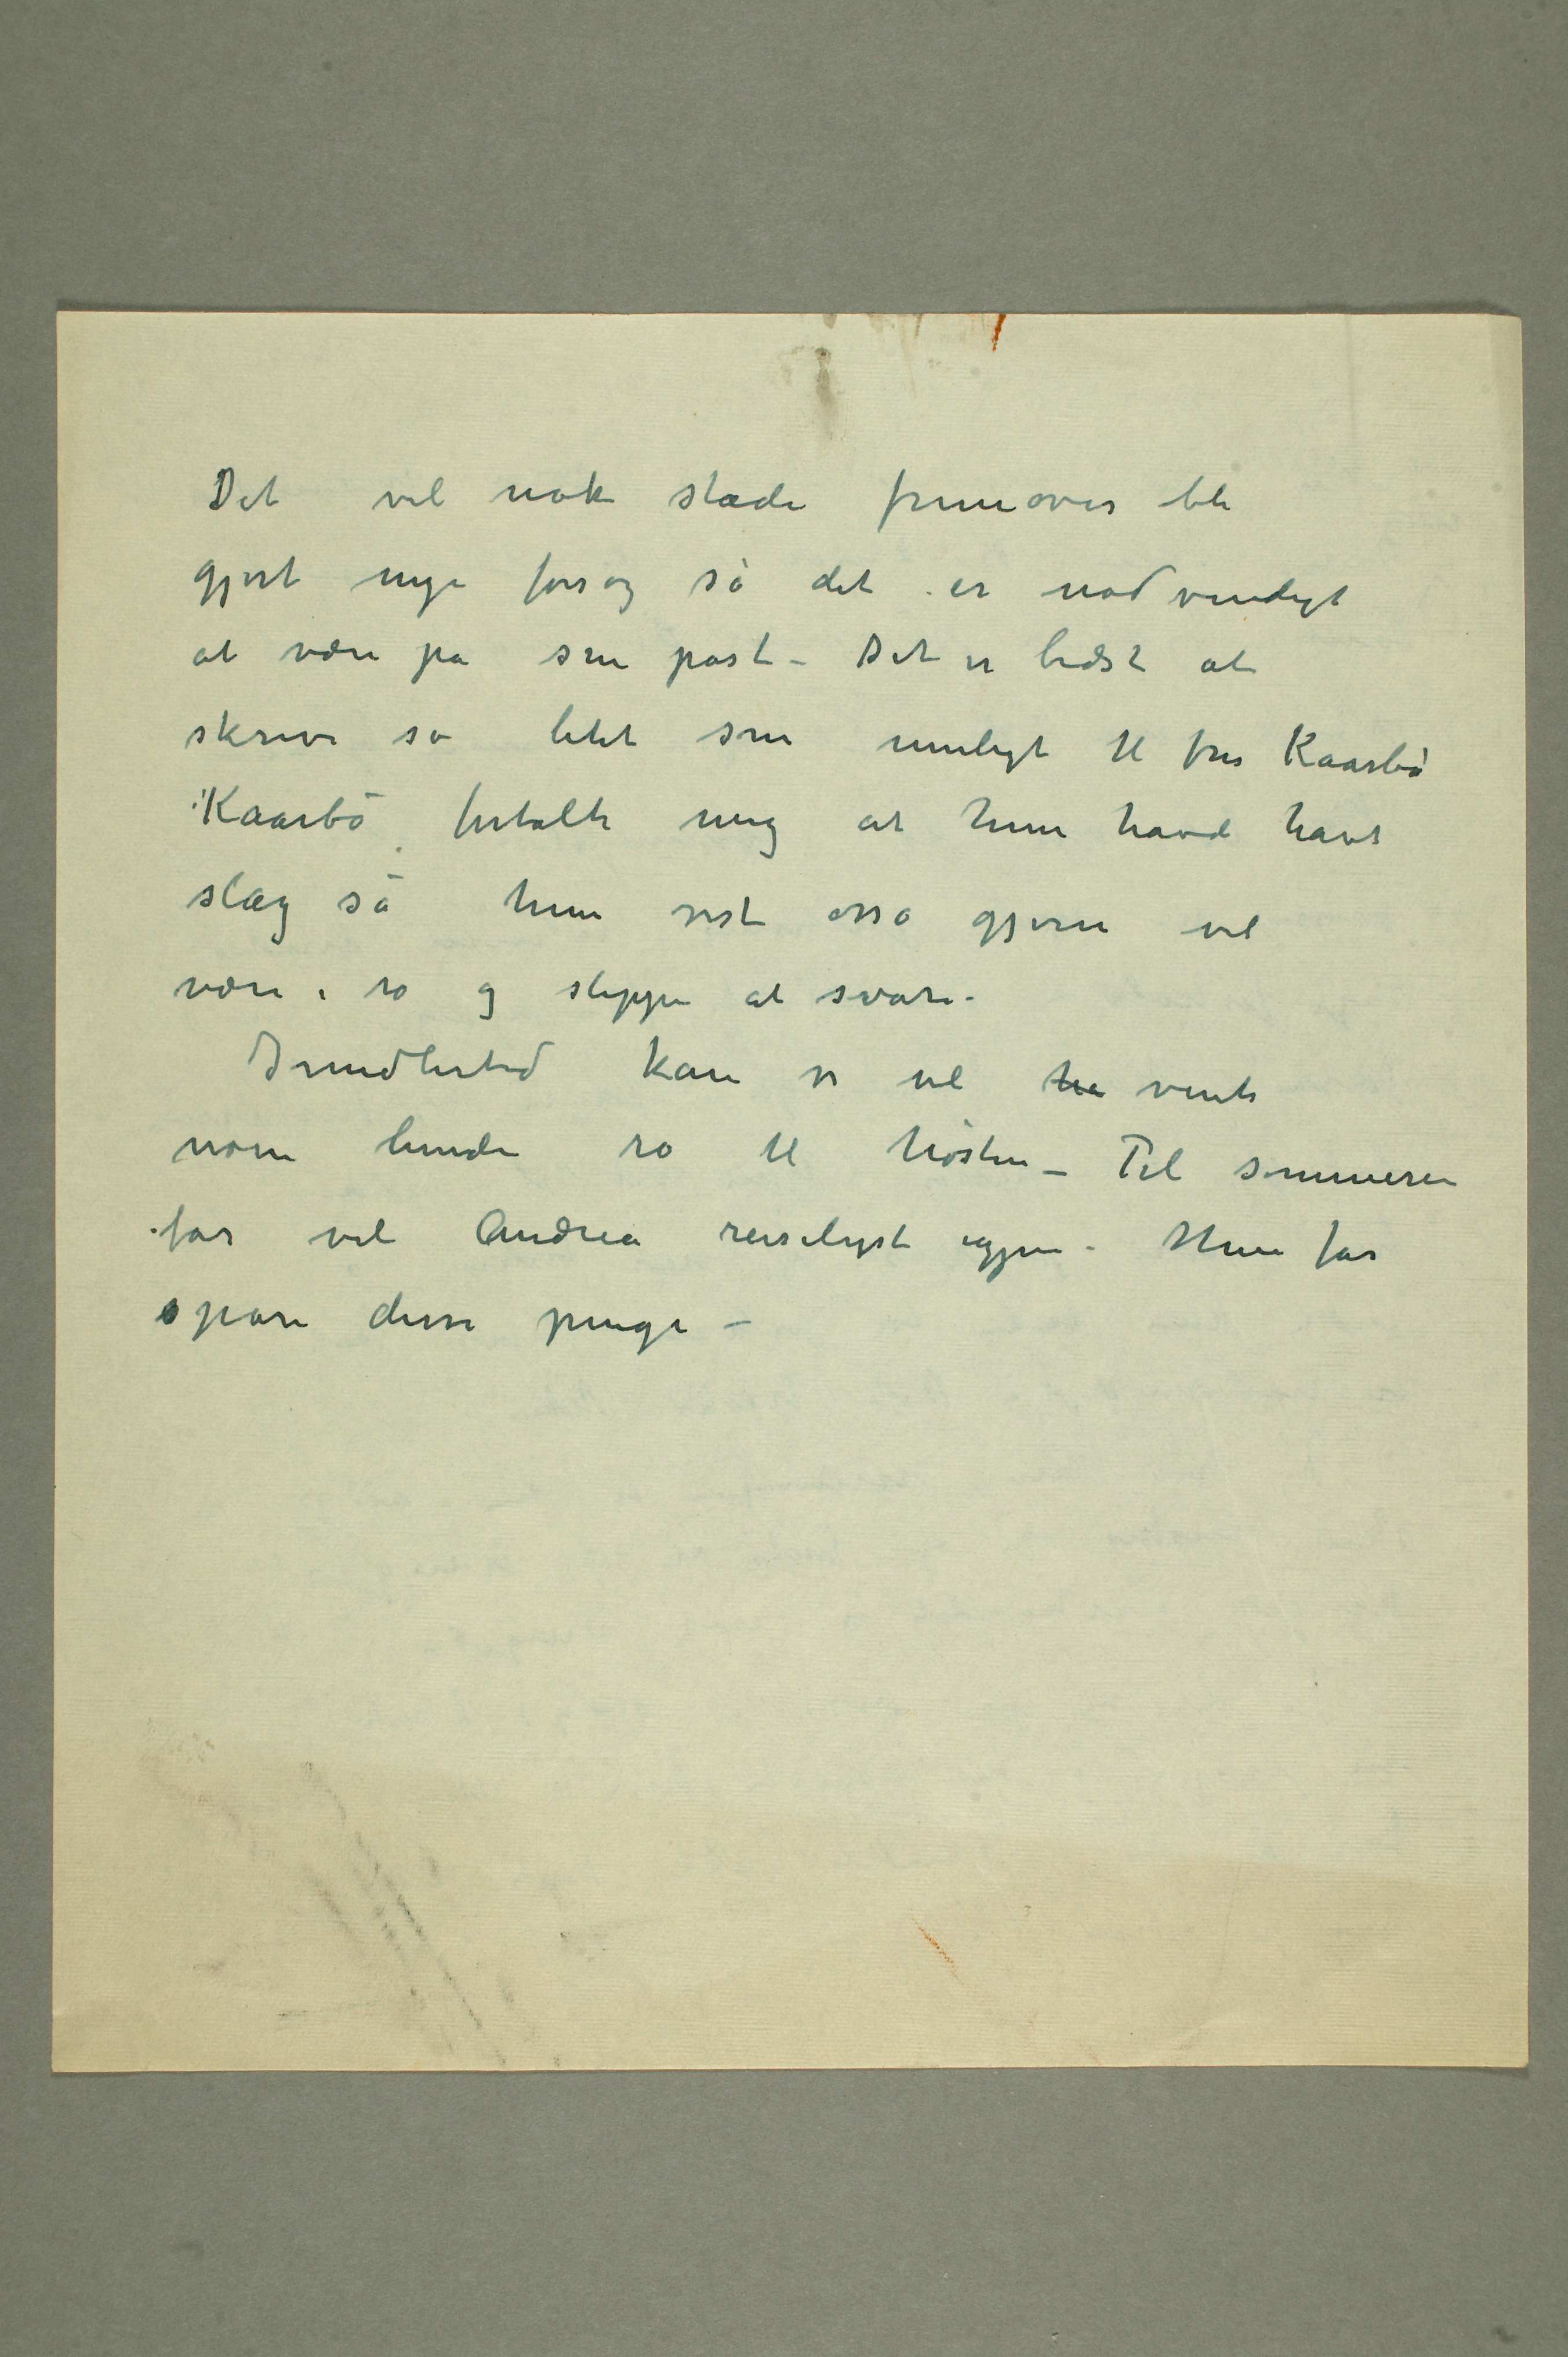 Det vil nok stadi fremover bli
gjort nye forsøg så det er nødvendigt
at være på sin post – Det er bedst at
skrive så litet som muligt til fru Kaarbø
Kaarbø fortalte mig at hun havd havt
slag så hun vist osså gjerne vil
være i ro og slippe at svare.
Imidlertid kan vi vel ha vente
nogenlunde ro til høsten – Til sommeren
får vel Andrea reiselyst igjen – Hun får
spare disse penge –